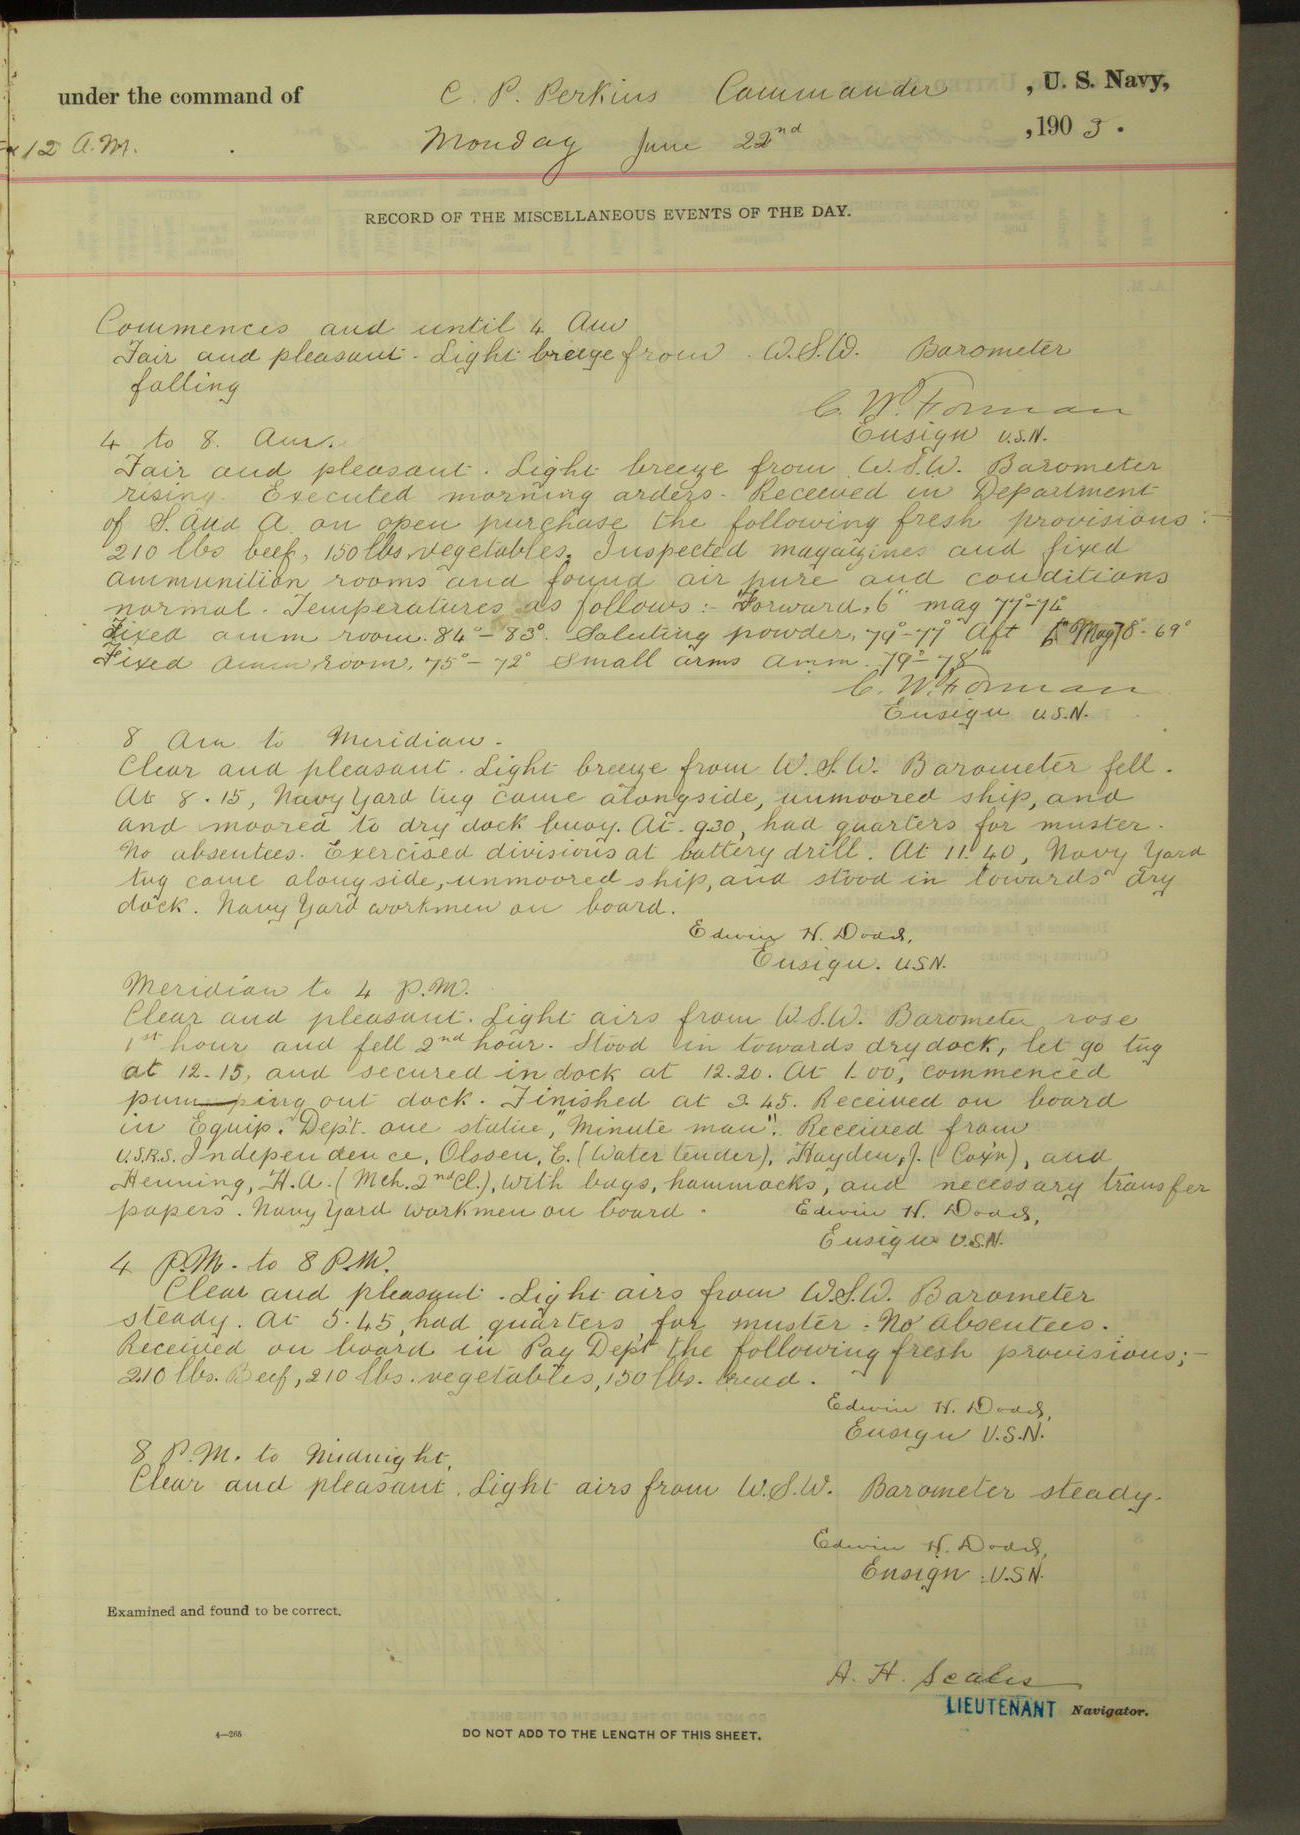 under the command of C. P. Perkins Commander , U. S. Navy,
12 A.M. Monday June 22nd , 1903.
RECORD OF THE MISCELLANEOUS EVENTS OF THE DAY.
Commences and until 4 Am
Fair and pleasant. Light breeze from W.S.W. Barometer
falling
C. W. Forman
Ensign U.S.N.
4 to 8. Am.
Fair and pleasant. Light breeze from W.S.W. Barometer
rising. Executed morning orders. Received in Department
of S. and A. on open purchase the following fresh provisions:-
210 lbs beef, 150 lbs vegetables. Inspected magazines and fixed
ammunition rooms and found air pure and conditions
normal. Temperatures as follows:- Forward, 6" mag 77°-74°
Fixed amm room. 84°-83°. Saluting powder, 79°-77° Aft 6" Mag 78°-69°
Fixed amm room, 75°-72° Small arms amm. 79°-78°
C. W. Forman
Ensign U.S.N.
8 Am to Meridian.
Clear and pleasant. Light breeze from W.S.W. Barometer fell.
At 8.15, Navy Yard tug came alongside, unmoored ship, and
and moored to dry dock buoy. At 9.30, had quarters for muster.
No absentees. Exercised divisions at battery drill. At 11.40, Navy Yard
tug came alongside, unmoored ship, and stood in towards dry
dock. Navy Yard workmen on board.
Edwin H. Dodd,
Ensign. U.S.N.
Meridian to 4 P.M.
Clear and pleasant. Light airs from W.S.W. Barometer rose
1st hour and fell 2nd hour. Stood in towards dry dock, let go tug
at 12.15, and secured in dock at 12.20. At 1.00, commenced
pumping out dock. Finished at 3.45. Received on board
in Equip. Dep't. one statue, "Minute man". Received from
U.S.R.S. Independence, Olssen, E. (Water tender), Hayden, J. (Cox'n), and
Henning, H.A. (Mch. 2nd Cl.), with bags, hammocks, and necessary transfer
papers. Navy Yard workmen on board.
Edwin H. Dodd,
Ensign U.S.N.
4 P.M. to 8 P.M.
Clear and pleasant. Light airs from W.S.W. Barometer
steady. At 5.45, had quarters for muster. No absentees.
Received on board in Pay Dep't the following fresh provisions;-
210 lbs. Beef, 210 lbs. vegetables, 150 lbs. bread.
Edwin H. Dodd,
Ensign U.S.N.
8 P.M. to Midnight.
Clear and pleasant. Light airs from W.S.W. Barometer steady.
Edwin H. Dodd,
Ensign U.S.N.
Examined and found to be correct.
A. H. Scales
LIEUTENANT Navigator.
4—265
DO NOT ADD TO THE LENGTH OF THIS SHEET.